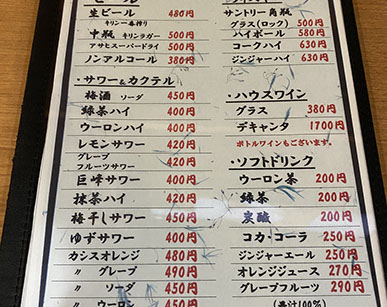 生ビール 480円
キリン一番搾り
中瓶 キリンラガー 500円
アサヒスーパードライ 500円
ノンアルコール 380円
・サワー&カクテル
梅酒 ソーダ 450円
緑茶ハイ 400円
ウーロンハイ 400円
レモンサワー 420円
グレープ
フルーツサワー 420円
巨峰サワー 400円
抹茶ハイ 420円
梅干しサワー 450円
ゆずサワー 400円
カシスオレンジ 480円
〃 グレープ 490円
〃 ソーダ 450円
〃 ウーロン 450円
サントリー角瓶
グラス(ロック) 500円
ハイボール 580円
コークハイ 630円
ジンジャーハイ 630円
・ハウスワイン
グラス 380円
デキャンタ 1700円
ボトルワインもございます。
・ソフトドリンク
ウーロン茶 200円
緑茶 200円
炭酸 200円
コカ・コーラ 250円
ジンジャーエール 250円
オレンジジュース 270円
グレープフルーツ 290円
(果汁100%)